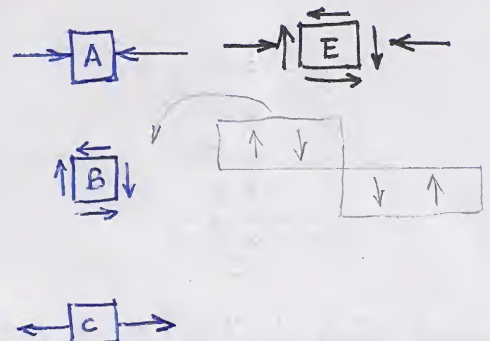 A
E
B
C